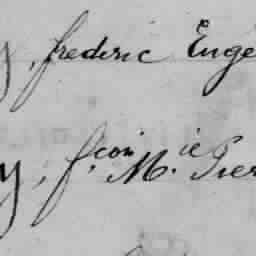 y, frederic Euge
y, f.çois M.ie Pier